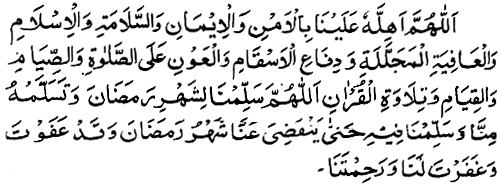 اَللّٰهُمَّ اَهِلَّهٗ عَلَيْنَا بِالْاَمْنِ وَالْاِيْمَانِ وَالسَّلَامَةِ وَالْاِسْلَامِ
وَالْعَافِيَةِ الْمُجَلَّلَةِ وَدِفَاعِ الْاَسْقَامِ وَالْعَوْنِ عَلَى الصَّلٰوةِ وَالصِّيَامِ
وَالْقِيَامِ وَتِلَاوَةِ الْقُرْاٰنِ اَللّٰهُمَّ سَلِّمْنَا لِشَهْرِ رَمَضَانَ وَتَسَلَّمْهُ
مِنَّا وَسَلِّمْنَا فِيْهِ حَتّٰى يَنْقَضِىَ عَنَّا شَهْرُ رَمَضَانَ وَقَدْ عَفَوْتَ
وَغَفَرْتَ لَنَا وَرَحِمْتَنَا۔